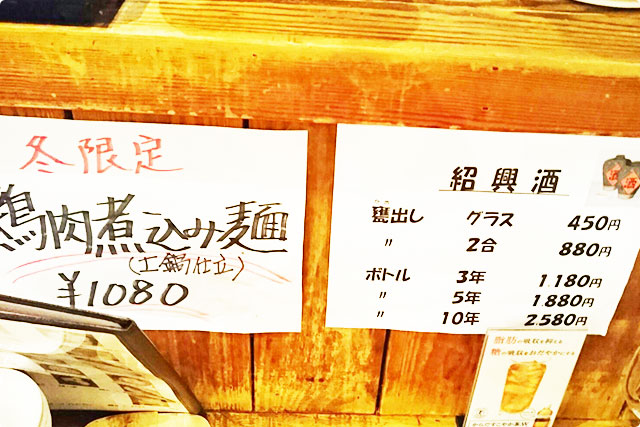 冬限定
鶏肉煮込み麺
(土鍋仕立)
¥1080
紹興酒
甕出し グラス 450円
〃 2合 880円
ボトル 3年 1.180円
〃 5年 1.880円
〃 10年 2.580円
脂肪の吸収を抑える
糖の吸収をおだやかにする
からだすこやか茶W